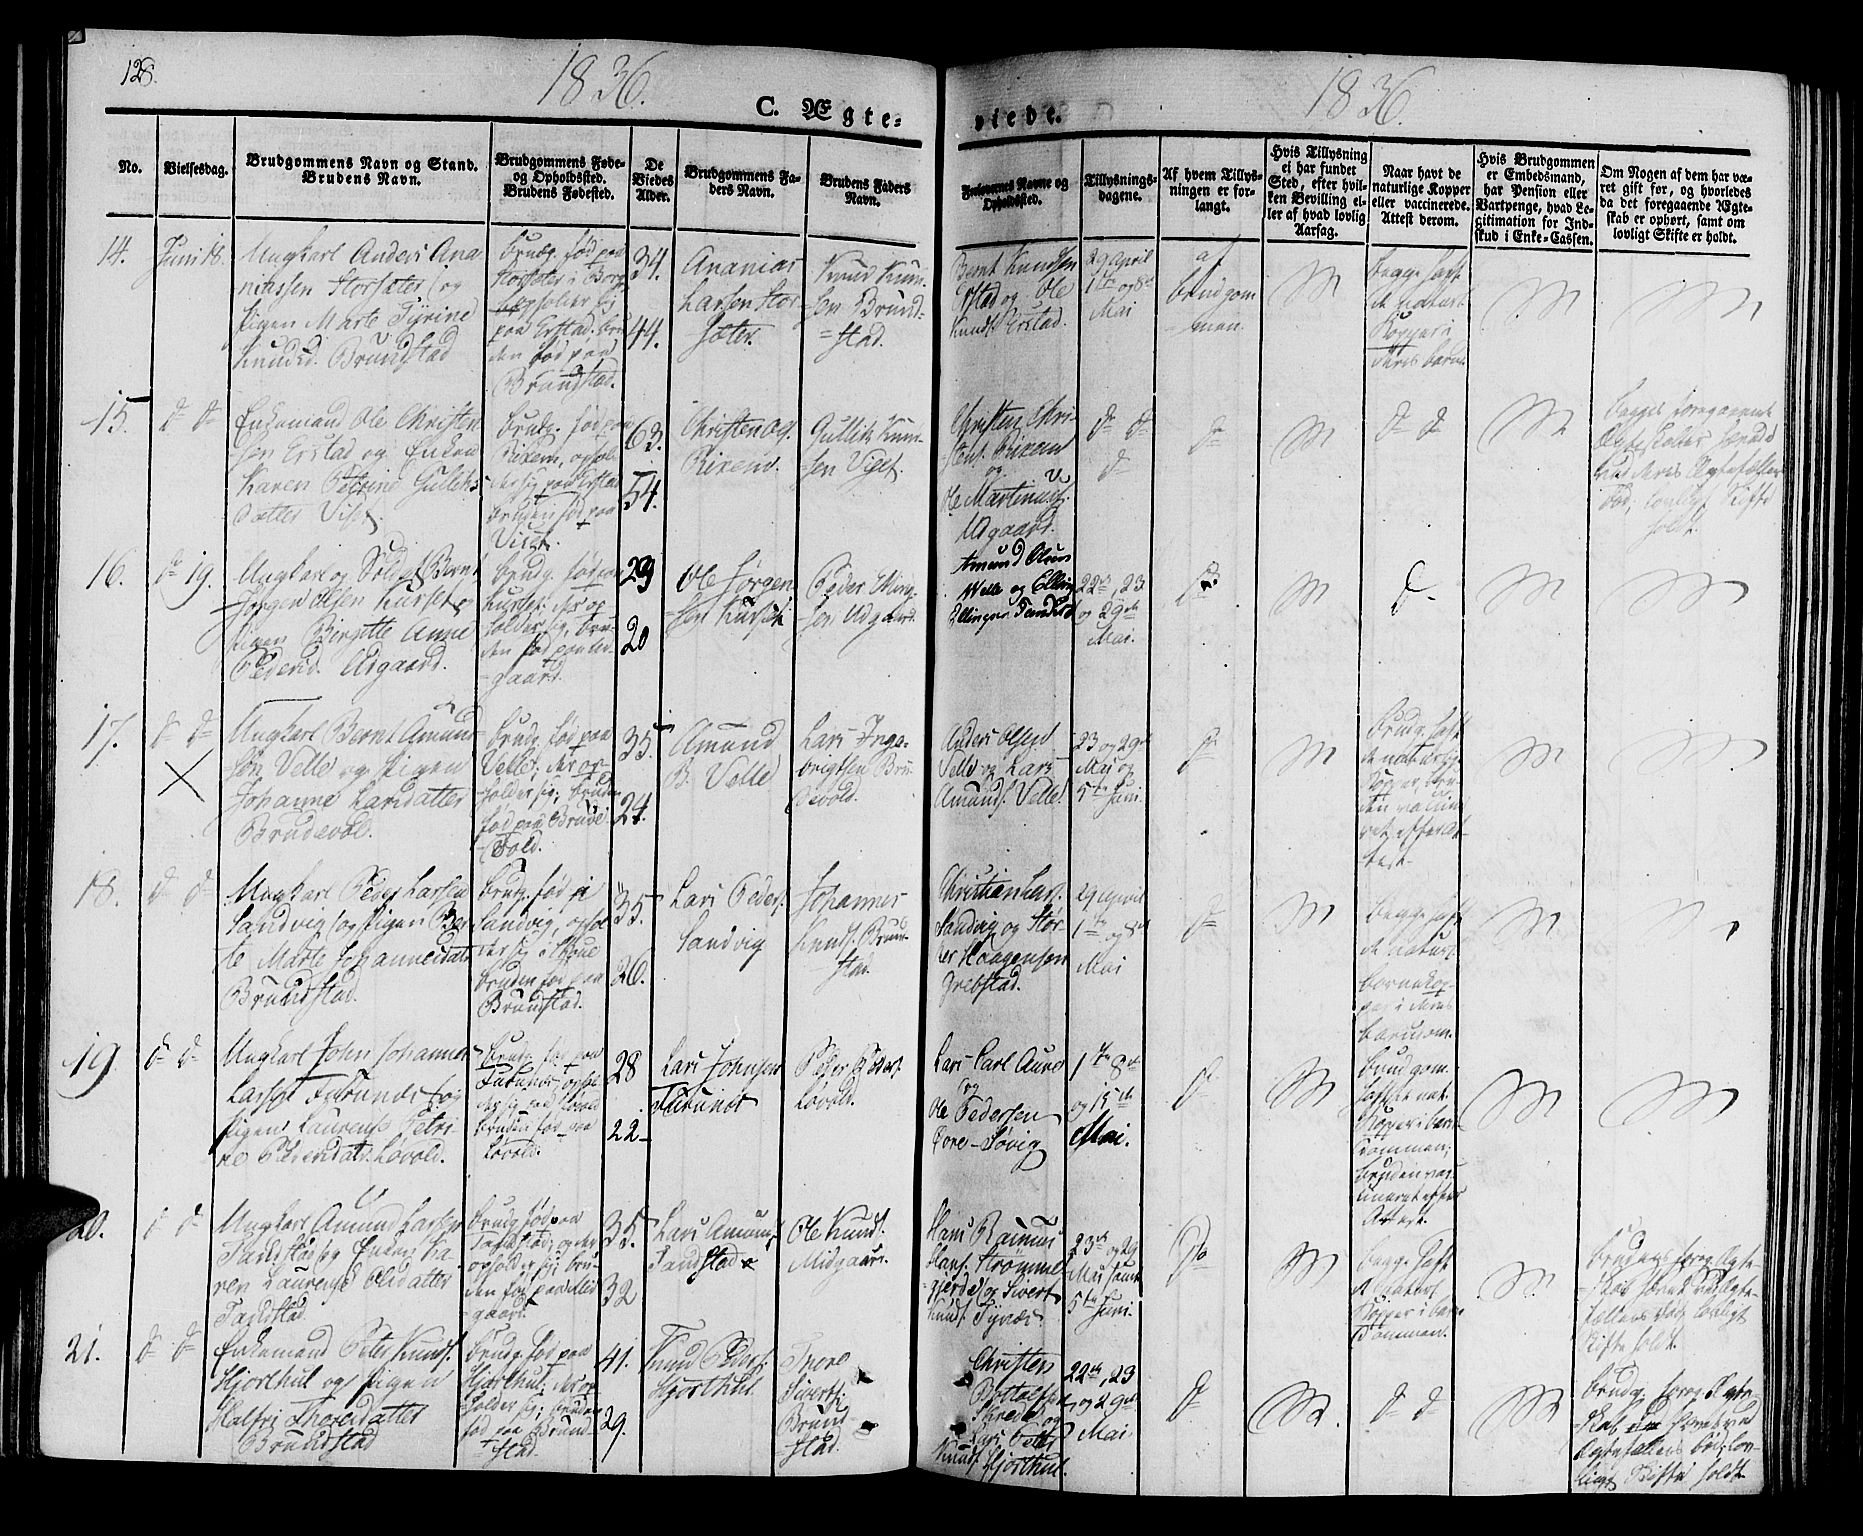 128.
1836.
1836.
C. Ægte-
viede.
No.
Vielsesdag.
Brudgommens Navn og Stand.
Brudens Navn.
Brudgommens Føde-
og Opholdssted.
Brudens Fødested.
De
Viedes
Alder.
Brudgommens Fa-
ders Navn.
Brudens Faders
Navn.
Forlovernes Navne og
Opholdssted.
Tillysnings-
dagene.
Af hvem Tillys-
ningen er for-
langt.
Hvis Tillysning
ei har fundet
Sted, efter hvil-
ken Bevilling el-
ler af hvad lovlig
Aarsag.
Naar havt de
naturlige Kopper
eller vaccinerede.
Attest derom.
Hvis Brudgommen
er Embedsmand,
har Pension eller
Vartpenge, hvad Le-
gitimation for Ind-
skud i Enke-Cassen.
Om Nogen af dem har væ-
ret gift før, og hvorledes
da det foregaaende Ægte-
skab er ophørt, samt om
lovligt Skifte er holdt.
14.
Juni 18.
Ungkarl Anders Ana-
niassen Storsæter og
Pigen Marte Tyrine
Knudsd. Brundstad
Brudg. fød paa
Storsæter i Borg
opholder sig
paa Erstad, bru
den fød paa
Brundstad.
34.
44.
Ananias
Larsen Stor-
sæter.
Knud Knud-
sen Brund-
stad.
Bernt Knudsen
Erstad og Ole
Knuds. Erstad.
29 April
1ste og 8de
Mai
af
brudgom
men.
begge havt
de naturl.
Kopper i
deres barnd
15.
do do
Enkemand Ole Christen
sen Erstad og Enken
Karen Petrine Gulliks
datter Viset
brudg. fød paa
Rixem, ophol
der sig paa Erstad
bruden fød paa
Viset.
63.
54.
Christen Ols.
Rixem.
Gullik Knud-
sen Viset.
Christen Chri-
stens. Rixem
og
Ole Martinus.
Udgaard.
do do
do
do
do do
Begges foregaaende
Ægteskaber hævede
ved deres Ægtefællers
Død, lovligt Skifte
holdt.
16.
do 19.
Ungkarl og Soldat Bernt
Jørgen Olsen Kurset og
pigen Birgitte Anne
Pedersd. Udgaard.
brudg. fød paa
Kurset, der op
holder sig, bru-
den fød paa Ud-
gaard.
29
20
Ole Jørgen
sen Kurset
Peder
Udgaard.
Amund Olsen
Welle og Elling
Ellingsen Tandstad
22de, 23
og 29de
Mai.
do
do
17.
do do
Ungkarl Bernt Amund-
sen Velle og pigen
Johanne Larsdatter
Brudevol.
brudg. fød paa
Velle, der op-
holder sig, bruden
fød paa Brude
vold.
35
24.
Amund
B. Velle
Lars Inge-
brigtsen Bru-
devold.
Anders Olsen
Velle og Lars
Amunds. Velle.
23 og 29de
Mai og
5te Juni.
do
brudg. havt
de naturlige
Kopper, bru-
den vaccine
ret efter At-
test.
18.
do do
Ungkarl Peder Larsen
Sandvig og pigen Ber
te Marte Johannesdatt
Brundstad.
brudg. fød i
Sandvig, ophol
der sig i Skoue
bruden fød paa
Brundstad.
35.
26.
Lars Peders.
Sandvig
Johannes
Knuds. Brund-
stad.
Christian Lars.
Sandvig og Stør-
ker Haagensen
Grebstad.
29 April
1ste og 8de
Mai
do
begge havt
de naturl.
børnekop-
per i deres
barndom.
19
do do
Ungkarl John Johannes
Larsen Furunes og
pigen Laurense Petri-
ne Pedersdatt. Løvold.
brudg. fød paa
Furunes, ophol
der sig paa Løvold
bruden fød paa
Løvold.
28
22
Lars Johnsen
Furunes
Peder Peders.
Løvold.
Lars Carl Aure
og
Ole Pedersen
Øvre-Søvig
1ste 8de
og 15de
Mai.
do
brudgom.
havt de nat.
Kopper i barn
dommen,
bruden vac
cineret efter
Attest.
20.
do do
Ungkarl Amund Larsen
Tandstad og Enken Ka-
ren Laurense Olsdatter
Tandstad.
brudg. fød paa
Tandstad, og der
opholder sig, bru-
den fød paa Mid-
gaard.
35
32
Lars Amund.
Tandstad
Ole Knuds.
Midgaard.
Hans Rasmus
Hans. Strømme
gjerde og Sivert
Knuds. Tynæs.
23de og 29
Mai samt
5te Juni.
do
begge havt
de naturl.
Kopper i barn
dommen.
brudens foreg. Ægte
skab hævet ved Ægte
fællens Død, lovligt
Skifte holdt.
21.
do do
Enkemand Peter Knuds.
Hjorthul og pigen
Halfri Thoresdatter
Brundstad
brudg. fød paa
Hjorthul, der op
holder sig, bruden
fød paa Brund-
stad.
41.
29.
Knud Peders.
Hjorthul
Thore
Siverts.
Brund
stad.
Christen
og
Lars Peter
Knuds. Hjorthul.
22de, 23
og 29de
Mai
do
do do
brudg. foreg. Ægte-
skab hævet ved
Ægtefællens død, lov-
ligt Skifte holdt